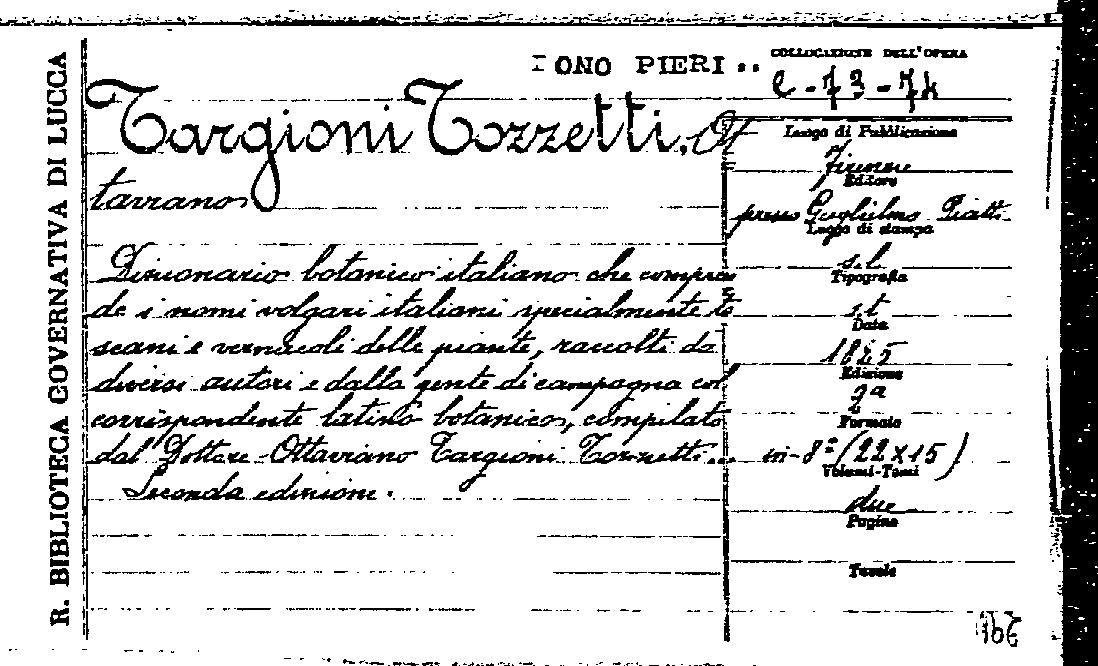 R. BIBLIOTECA GOVERNATIVA DI LUCCA
ONO PIERI ..
COLLOCAZIONE DELL'OPERA
C-73-74
Targioni Tozzetti, Ot
taviano
Dizionario botanico italiano che compren
de i nomi volgari italiani specialmente to
scani e vernacoli delle piante, raccolti da
diversi autori e dalla gente di campagna col
corrispondente latino botanico, compilato
dal Dottore Ottaviano Targioni Tozzetti...
Seconda edizione.
Luogo di Pubblicazione
Firenze
Editore
presso Guglielmo Piatti
Luogo di stampa
s.l.
Tipografia
s.t
Data
1825
Edizione
2ª
Formato
in-8º (22x15)
Volumi-Tomi
due
Pagine
Tavole